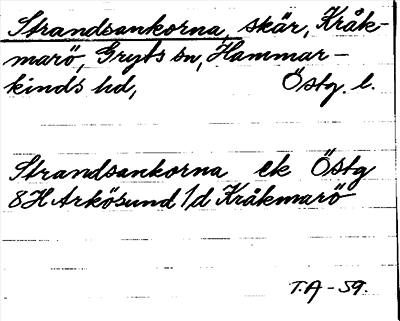 Strandsankorna, skär, Kråk-
marö, Gryts sn, Hammar-
kinds hd, Östg. l.
Strandsankorna ek Östg
8H Arkösund 1d Kråkmarö
T.A-59.